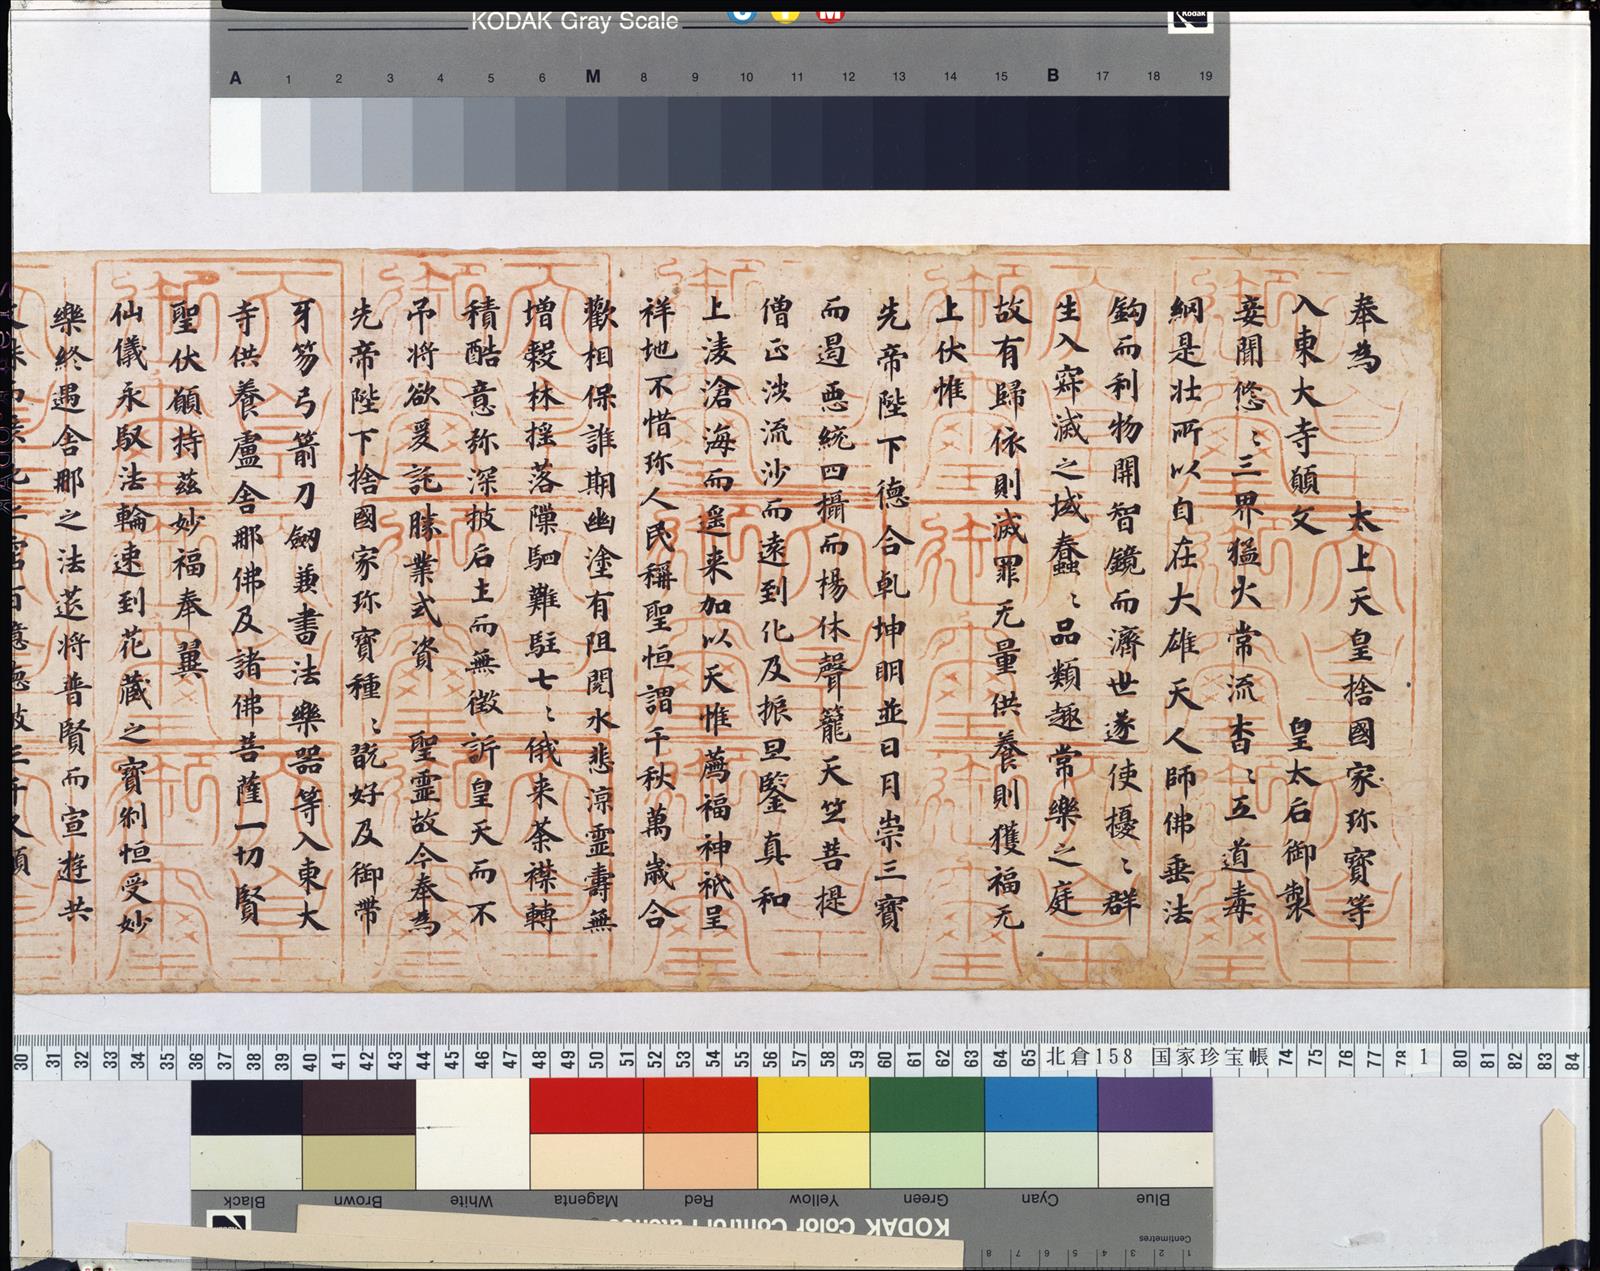 KODAK Gray Scale
C Y M
Kodak
A 1 2 3 4 5 6 M 8 9 10 11 12 13 14 15 B 17 18 19
奉為 太上天皇捨國家珎寳等
入東大寺願文 皇太后御製
妾聞悠〻三界猛火常流杳〻五道毒
網是壮所以自在大雄天人師佛垂法
鈎而利物開智鏡而濟世遂使擾〻群
生入寂滅之域蠢〻品類趣常樂之庭
故有歸依則滅罪无量供養則獲福无
上伏惟
先帝陛下德合乹坤明並日月崇三寳
而遏惡統四攝而楊休聲籠天竺菩提
僧正渉流沙而遠到化及振旦鑒真和
上淩滄海而遥来加以天惟薦福神祇呈
祥地不惜珎人民稱聖恒謂千秋萬歳合
歡相保誰期幽塗有阻閱水悲涼霊壽無
増穀林揺落隟駟難駐七〻俄来荼襟轉
積酷意弥深披后土而無徴訴皇天而不
吊将欲爰託勝業式資 聖霊故今奉為
先帝陛下捨國家珎寳種〻翫好及御帶
牙笏弓箭刀劔兼書法樂器等入東大
寺供養盧舍那佛及諸佛菩薩一切賢
聖伏願持茲妙福奉翼
仙儀永馭法輪速到花藏之寳刹恒受妙
樂終遇舍那之法莚将普賢而宣遊共
30 31 32 33 34 35 36 37 38 39 40 41 42 43 44 45 46 47 48 49 50 51 52 53 54 55 56 57 58 59 60 61 62 63 64 65 北倉158 国家珍宝帳 74 75 76 77 78 1 80 81 82 83 84
Black Brown White Magenta Red Yellow Green Cyan Blue
KODAK Color Control Patches
Centimetres
1 2 3 4 5 6 7 8